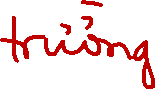 trường